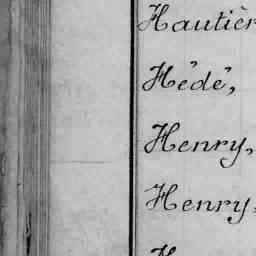 Hautièr
Hédé,
Henry,
Henry,